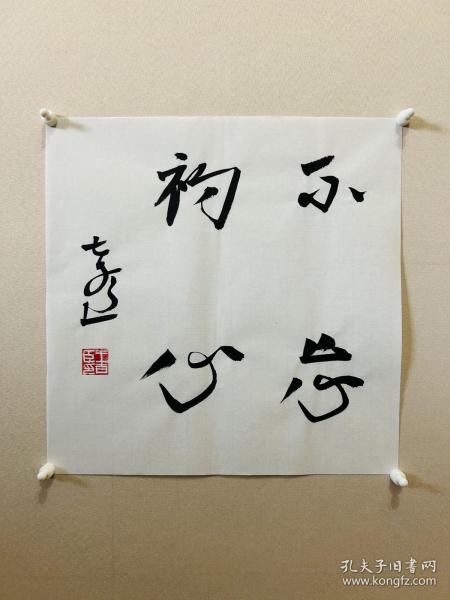 不忘
初心
孔夫子旧书网
www.kongfz.com